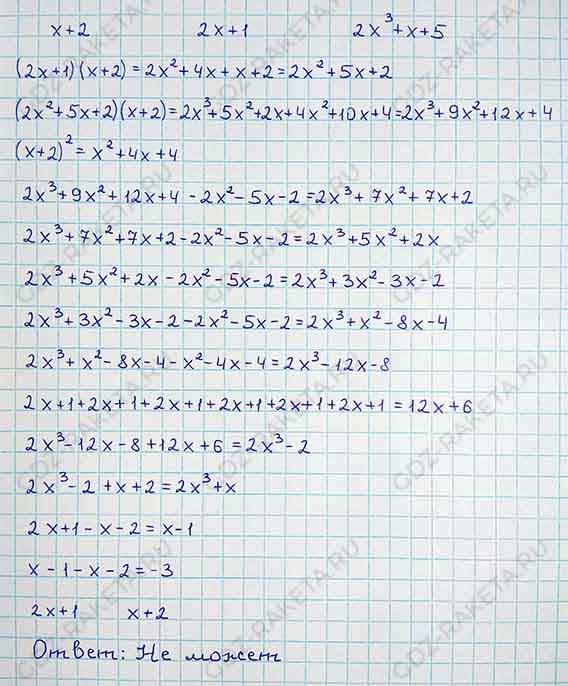 x+2 2x+1 2x³+x+5
(2x+1)(x+2)=2x²+4x+x+2=2x²+5x+2
(2x²+5x+2)(x+2)=2x³+5x²+2x+4x²+10x+4=2x³+9x²+12x+4
(x+2)²=x²+4x+4
2x³+9x²+12x+4-2x²-5x-2=2x³+7x²+7x+2
2x³+7x²+7x+2-2x²-5x-2=2x³+5x²+2x
2x³+5x²+2x-2x²-5x-2=2x³+3x²-3x-2
2x³+3x²-3x-2-2x²-5x-2=2x³+x²-8x-4
2x³+x²-8x-4-x²-4x-4=2x³-12x-8
2x+1+2x+1+2x+1+2x+1+2x+1+2x+1=12x+6
2x³-12x-8+12x+6=2x³-2
2x³-2+x+2=2x³+x
2x+1-x-2=x-1
x-1-x-2=-3
2x+1 x+2
Ответ: Не может
GDZ-RAKETA.RU